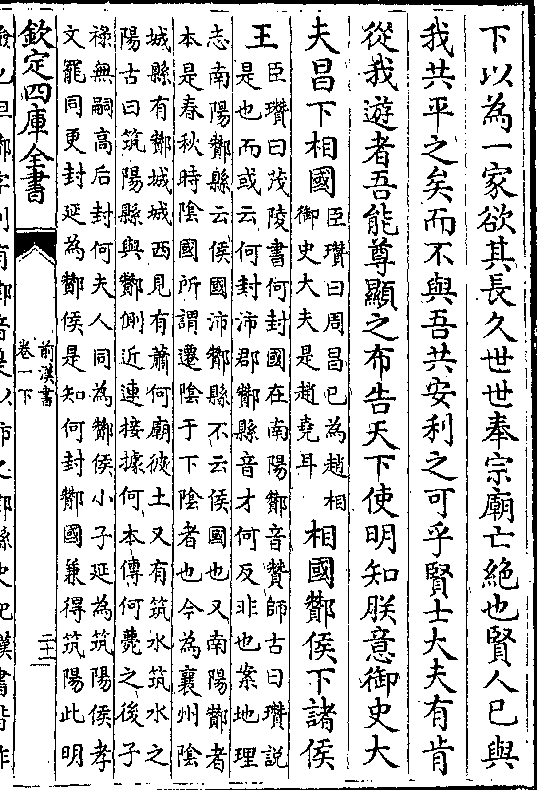 下以為一家欲其長久世世奉宗廟亡絶也賢人已與
我共平之矣而不與吾共安利之可乎賢士大夫有肯
從我遊者吾能尊顯之布告天下使明知朕意御史大
夫昌下相國
臣瓚曰周昌已為趙相
御史大夫是趙堯耳
相國酇侯下諸侯
王
臣瓚曰茂陵書何封國在南陽酇音贊師古曰瓚説
是也而或云何封沛郡酇縣音才何反非也案地理
志南陽酇縣云侯國沛酇縣不云侯國也又南陽酇者
本是春秋時陰國所謂遷陰于下陰者也今為襄州陰
城縣有酇城城西見有蕭何廟彼土又有筑水筑水之
陽古曰筑陽縣與酇側近連接據何本傳何薨之後子
祿無嗣高后封何夫人同為酇侯小子延為筑陽侯孝
文罷同更封延為酇侯是知何封酇國兼得筑陽此明
欽定四庫全書
前漢書
卷一下